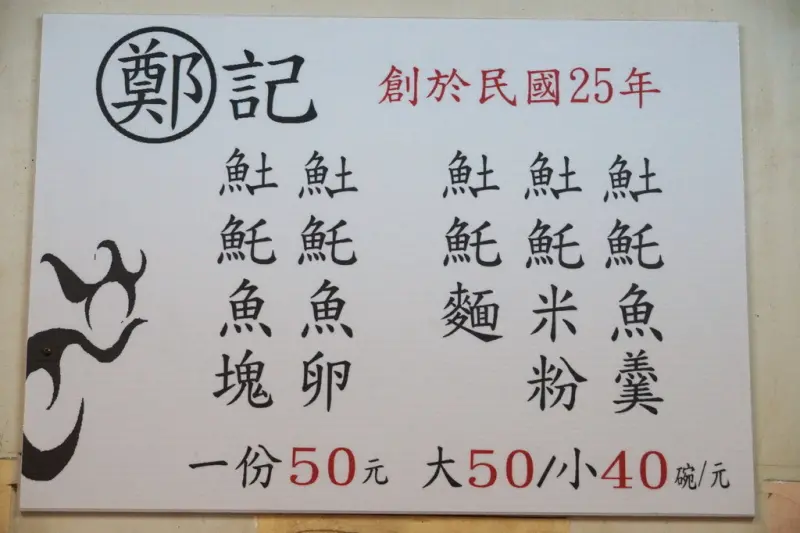 鄭記
創於民國25年
𩵚魠魚羹
𩵚魠米粉
𩵚魠麵
大50/小40碗/元
𩵚魠魚卵
𩵚魠魚塊
一份50元